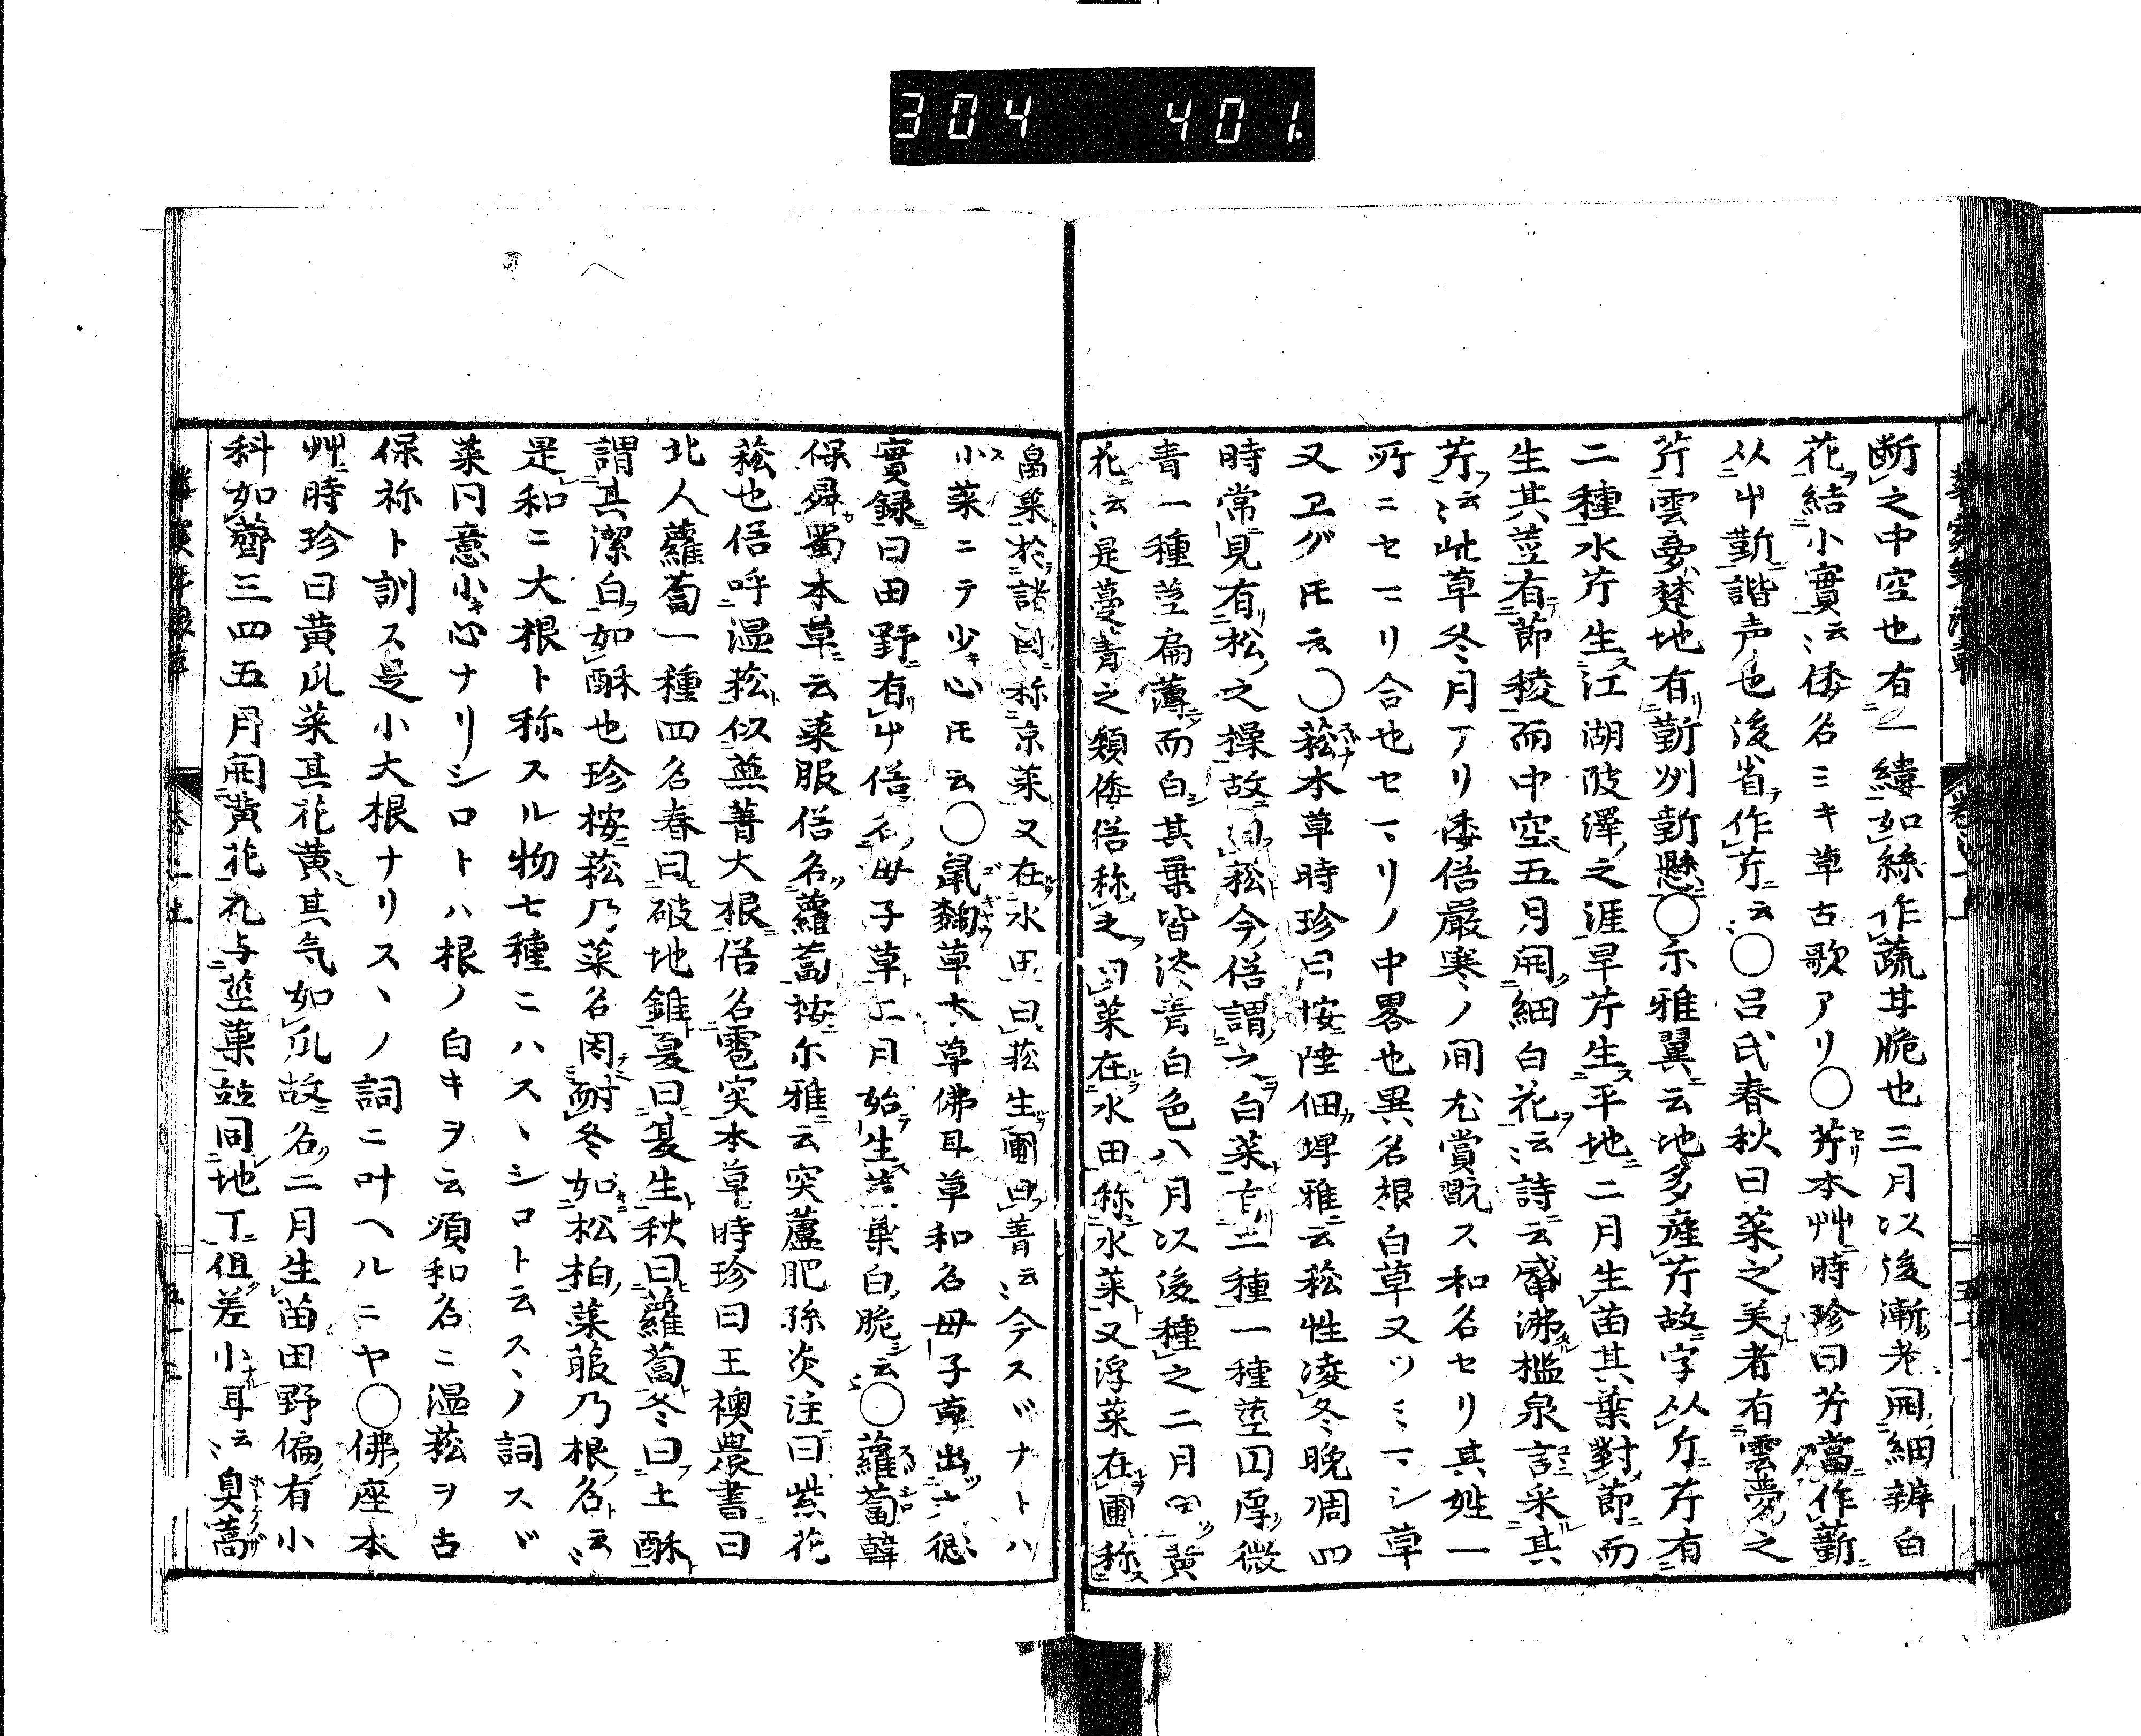 304 401.
断之中空也有一縷如絲作蔬甘脆也三月以後漸老開細辨白
花結小實云倭名ミキ草古歌アリ〇芹本艸時珍曰芹當作蘄
从艸蘄諧声也後省作芹云〇呂氏春秋曰菜之美者有雲夢之
芹雲夢楚地有蘄州蘄懸〇尓雅翼云地多産芹故字从斤芹有
二種水芹生江湖陂澤之涯旱芹生平地二月生苗其葉對節而
生其莖有節稜而中空五月開細白花云詩云觱沸檻泉言采其
芹云此草冬月アリ倭俗嚴寒ノ間尤賞翫ス和名セリ其姓一
所ニセマリ合也セマリノ中畧也異名根白草又ツミマシ草
又エグ氏云〇菘本草時珍曰按陸佃埤雅云菘性凌冬晩凋四
時常見有松之操故曰菘今俗謂之白菜有二種一種莖囙厚微
青一種莖扁薄而白其葉皆淡青白色八月以後種之二月開黄
花云是蔓青之類倭俗称之曰菜在水田称水菜又浮菜在圃称
畠菜於諸国称京菜又在水田曰菘生圃曰菁云今スヾナトハ
小菜ニテ少キ心氏云〇鼠麹草本草佛耳草和名母子草出文徳
實録曰田野有艸俗名母子草二月始生莖葉白脆云〇蘿蔔韓
保昇蜀本草云菜服俗名蘿蔔按尓雅云突蘆肥孫炎注曰紫花
菘也俗呼温菘似蕪菁大根俗名雹突本草時珍曰王禎農書曰
北人蘿蔔一種四名春曰破地錐夏曰夏生秋曰蘿蔔冬曰土酥
謂其潔白如酥也珍按菘乃菜名因耐冬如松柏菜菔乃根名云
是和ニ大根ト称スル物七種ニハスヽシロト云スヽノ詞スヾ
菜同意小キ心ナリシロトハ根ノ白キヲ云須和名ニ温菘ヲ古
保祢ト訓ス是小大根ナリスヽノ詞ニ叶ヘルニヤ〇佛座本
艸時珍曰黄瓜菜其花黄其气如瓜故名二月生苗田野偏有小
科如薺三四五月開黄花花与莖葉並同地丁但差小耳云臭蒿